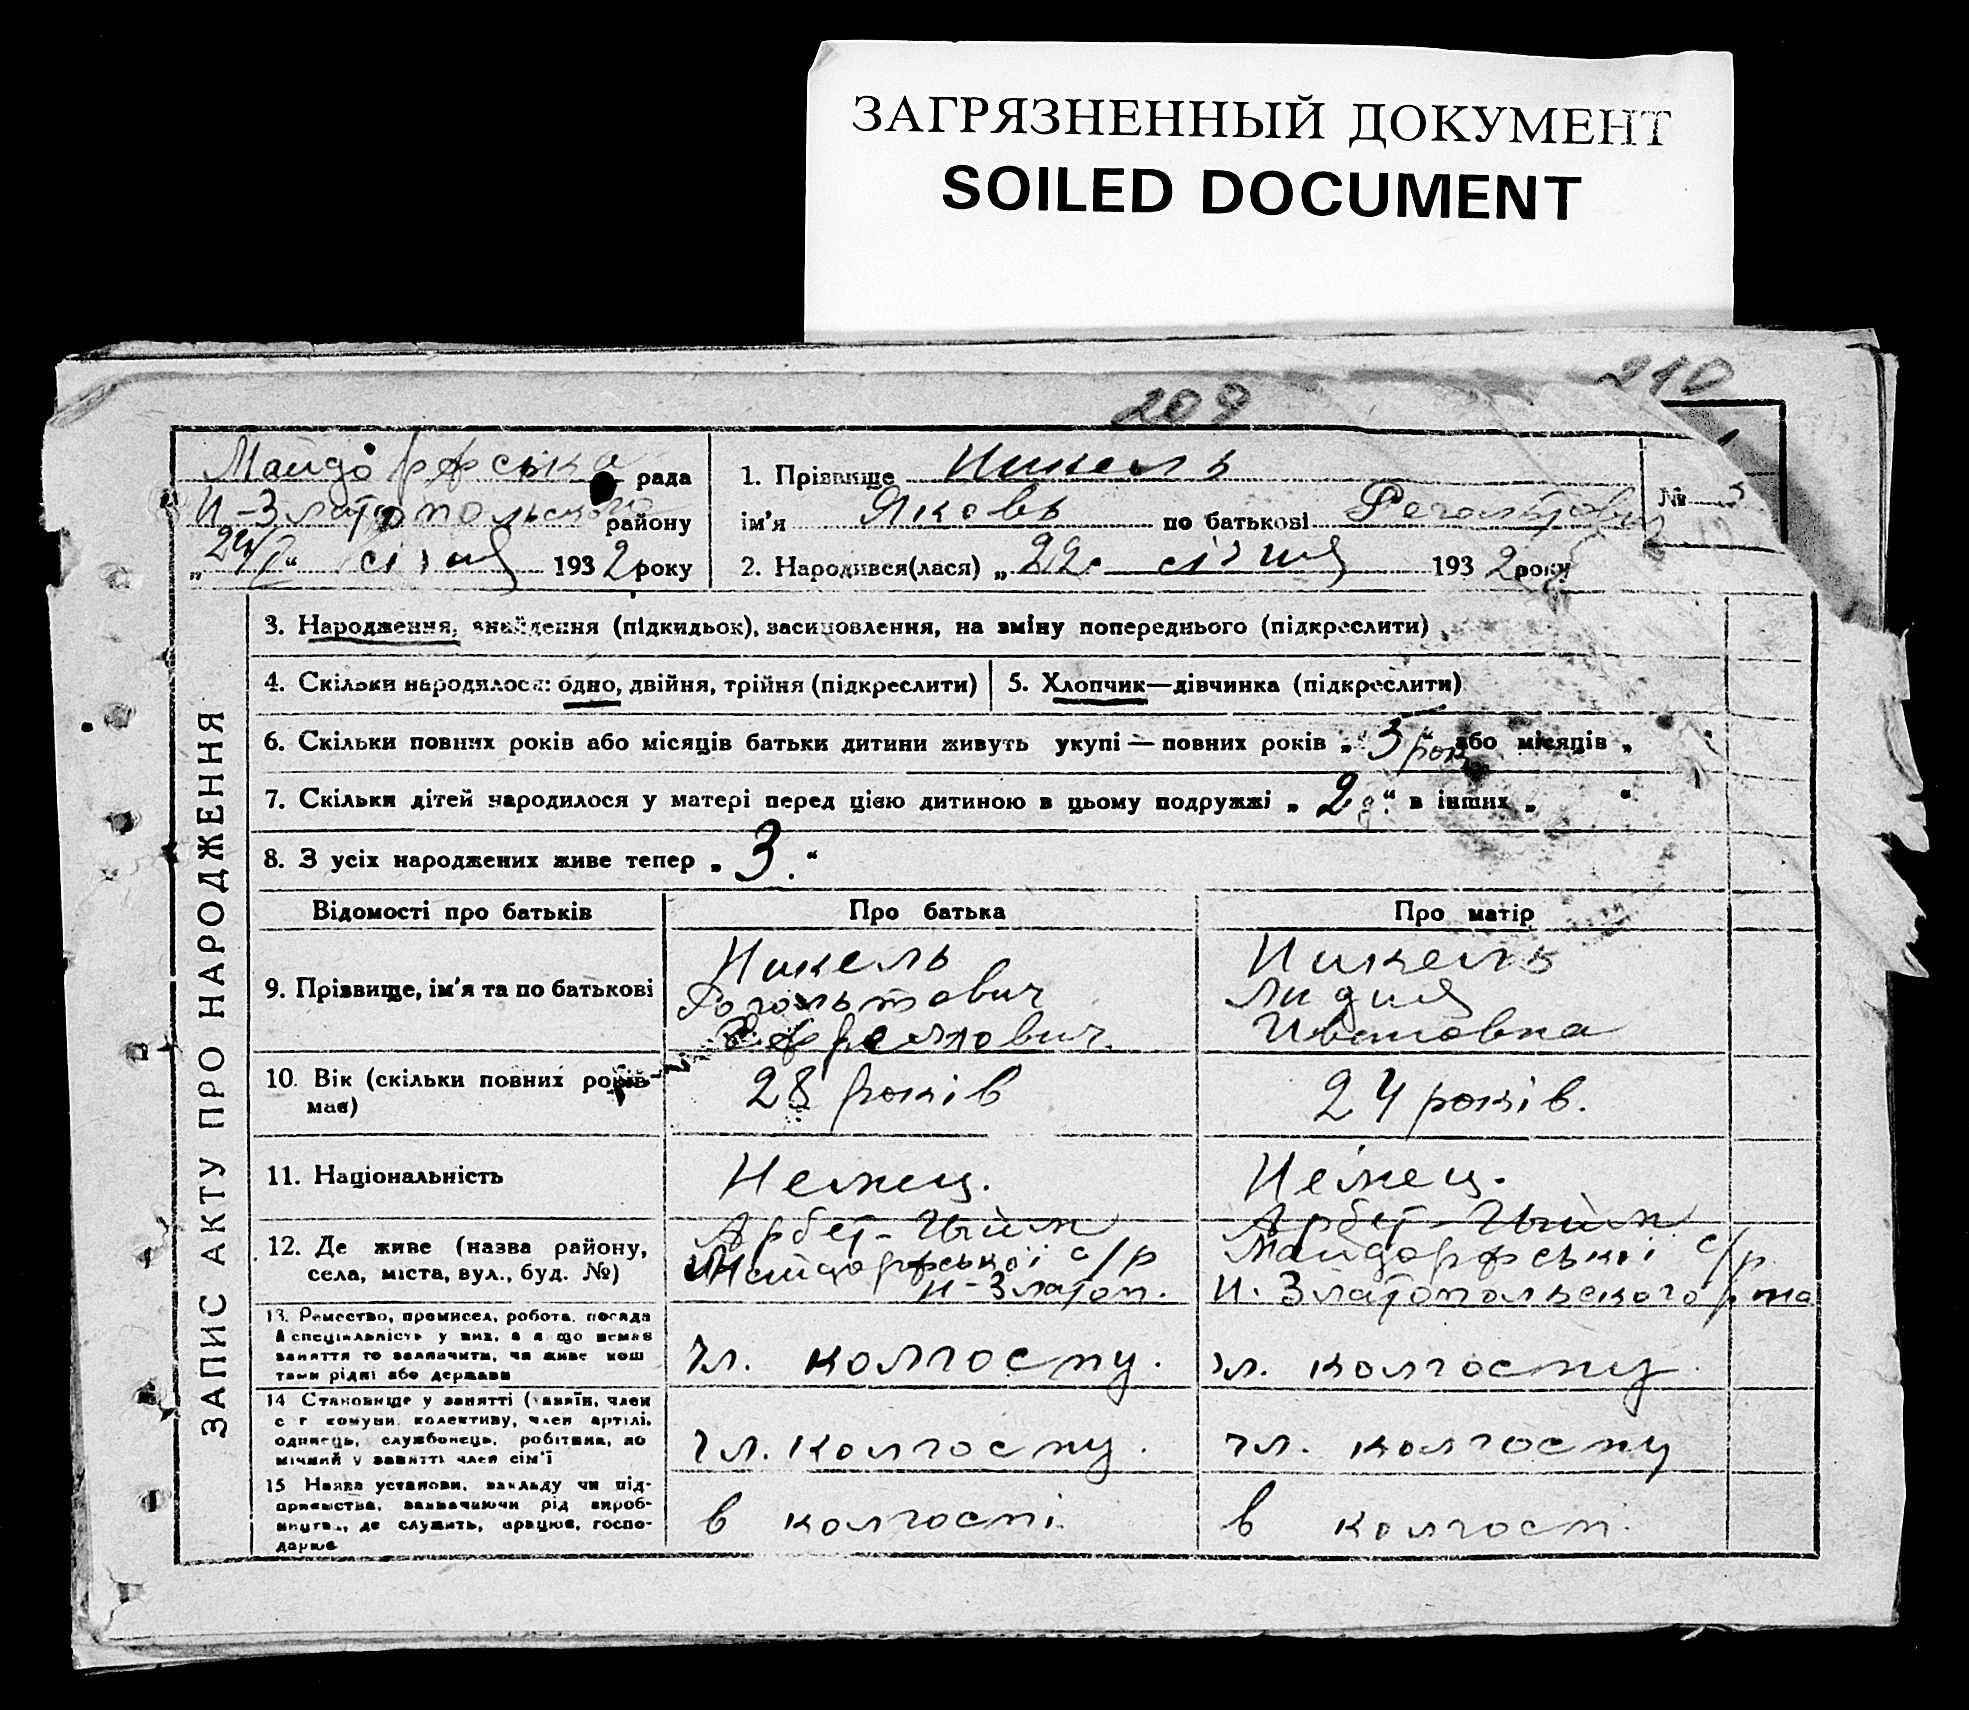 ЗАГРЯЗНЕННЫЙ ДОКУМЕНТ
SOILED DOCUMENT
210
209
Майдорфська рада
Н-Златопольського району
„24/I“ січня 1932 року
1. Прізвище Никель
ім'я Яковь по батькові
№
2. Народився(лася) „22. січня 1932 року
ЗАПИС АКТУ ПРО НАРОДЖЕННЯ
3. Народження, знайдення (підкидьок), засиновлення, на зміну попереднього (підкреслити)
4. Скільки народилося: одно, двійня, трійня (підкреслити)
5. Хлопчик—дівчинка (підкреслити)
6. Скільки повних років або місяців батьки дитини живуть укупі — повних років „ 5 рок “ або місяців „ “
7. Скільки дітей народилося у матері перед цією дитиною в цьому подружжі „ 2 д. “ в інших „ “
8. З усіх народжених живе тепер „ 3. “
Відомості про батьків
Про батька
Про матір
9. Прізвище, ім'я та по батькові
Никель
Никель
Лидия
Ивановна
10. Вік (скільки повних років має)
28 років
24 років.
11. Національність
Немец.
Немец.
12. Де живе (назва району, села, міста, вул., буд. №)
Арбет-Гыйм
Майдорфської с/р
Н-Златоп.
Арбет-Гыйм
Майдорфської с/р
Н. Златопольського р-на
13. Ремество, промисел, робота, посада й спеціяльність у них, а якщо немає заняття то зазначити, чи живе кош
тами рідні або держави
чл. колгоспу.
чл. колгоспу.
14 Становище у занятті (хазяїн, член с г комуни, колективу, член артілі, одинець, службовець, робітник, по
мічний у занятті член сім'ї
чл. колгоспу.
чл. колгоспу
15 Назва установи, закладу чи під-
приємства, зазначаючи рід вироб-
ництва, де служить, працює, госпо-
дарює
в колгоспі.
в колгосп.